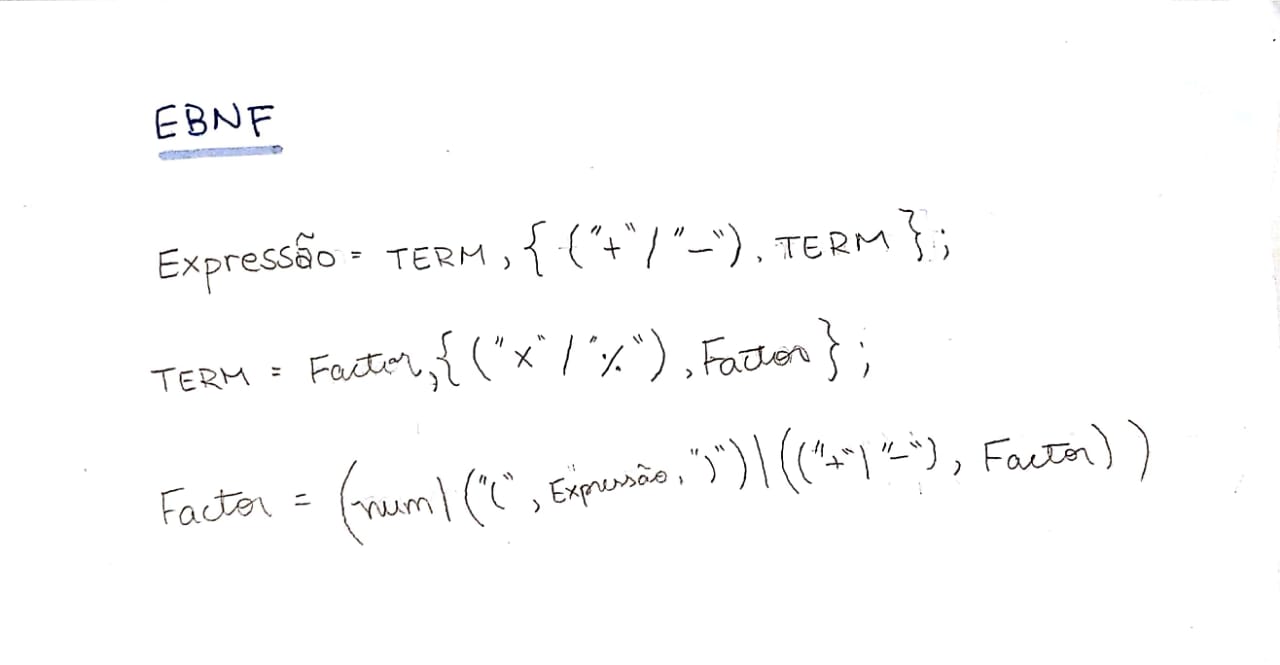 EBNF
Expressão = TERM, { ("+" / "-"), TERM };
TERM = Factor, { ("x" / "%"), Factor };
Factor = (num | ("(", Expressão, ")") | (("+" | "-"), Factor))